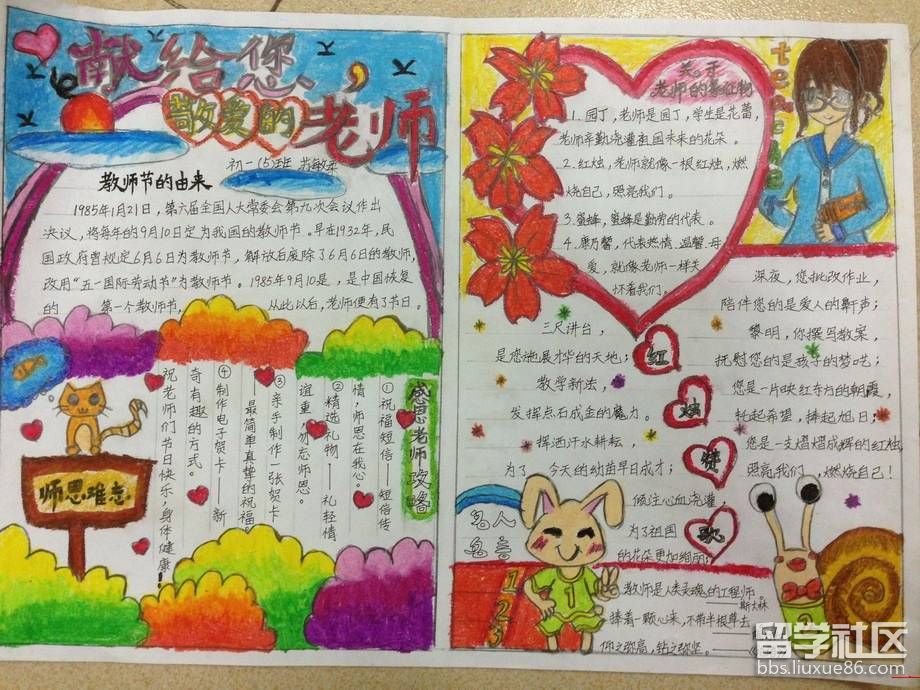 献给您、
敬爱的老师
初一(5)班
教师节的由来
1985年1月21日,第六届全国人大常委会第九次会议作出
决议,将每年的9月10日定为我国的教师节。早在1932年,民
国政府曾规定6月6日为教师节,解放后废除了6月6日的教师,
改用“五一国际劳动节”为教师节。1985年9月10是,是中国恢复
的 第一个教师节, 从此以后,老师便有了节日。
感恩老师攻略
①祝福短信——短信传
情,师恩在我心。
②精选礼物——礼轻情
谊重,勿忘师恩。
③亲手制作一张贺卡
——最简单真挚的祝福
④制作电子贺卡——新
奇有趣的方式。
祝老师们节日快乐、身体健康!
师恩难忘
关于
老师的象征物
1.园丁,老师是园丁,学生是花蕾,
老师辛勤浇灌祖国未来的花朵。
2.红烛,老师就像一根红烛,燃
烧自己,照亮我们。
3.蜜蜂,蜜蜂是勤劳的代表。
4.康乃馨,代表热情、温馨、母
爱,就像老师一样关
怀着我们。
红
烛
赞
歌
三尺讲台,
是您施展才华的天地;
教学新法,
发挥点石成金的魔力。
挥洒汗水耕耘,
为了 今天的幼苗早日成才;
倾注心血浇灌,
为了祖国
的花朵更加绚丽;
深夜,您批改作业,
陪伴您的是爱人的鼾声;
黎明,你撰写教案,
抚慰您的是孩子的梦呓;
您是一片映红东方的朝霞
托起希望,捧起旭日;
您是一支熠熠成辉的红烛,
照亮我们,燃烧自己!
名人
名言
1
2
3
1
教师是人类灵魂的工程师。
——斯大林
捧着一颗心来,不带半根草去
仰之弥高,钻之弥坚。
留学社区
bbs.liuxue86.com